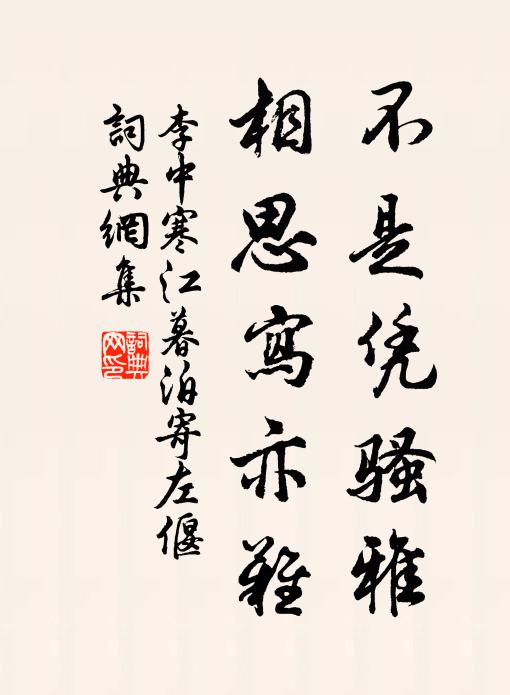 不是凭騷雅
相思寫亦難
李中寒江暮泊寄左偃
詞典網集
詞典網印